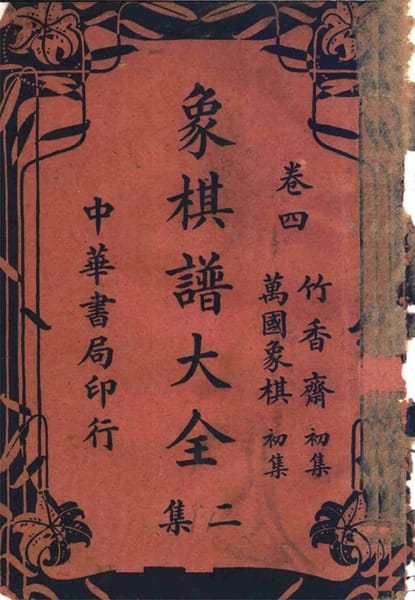 卷四
竹香齋 初集
萬國象棋 初集
象棋譜大全
二集
中華書局印行